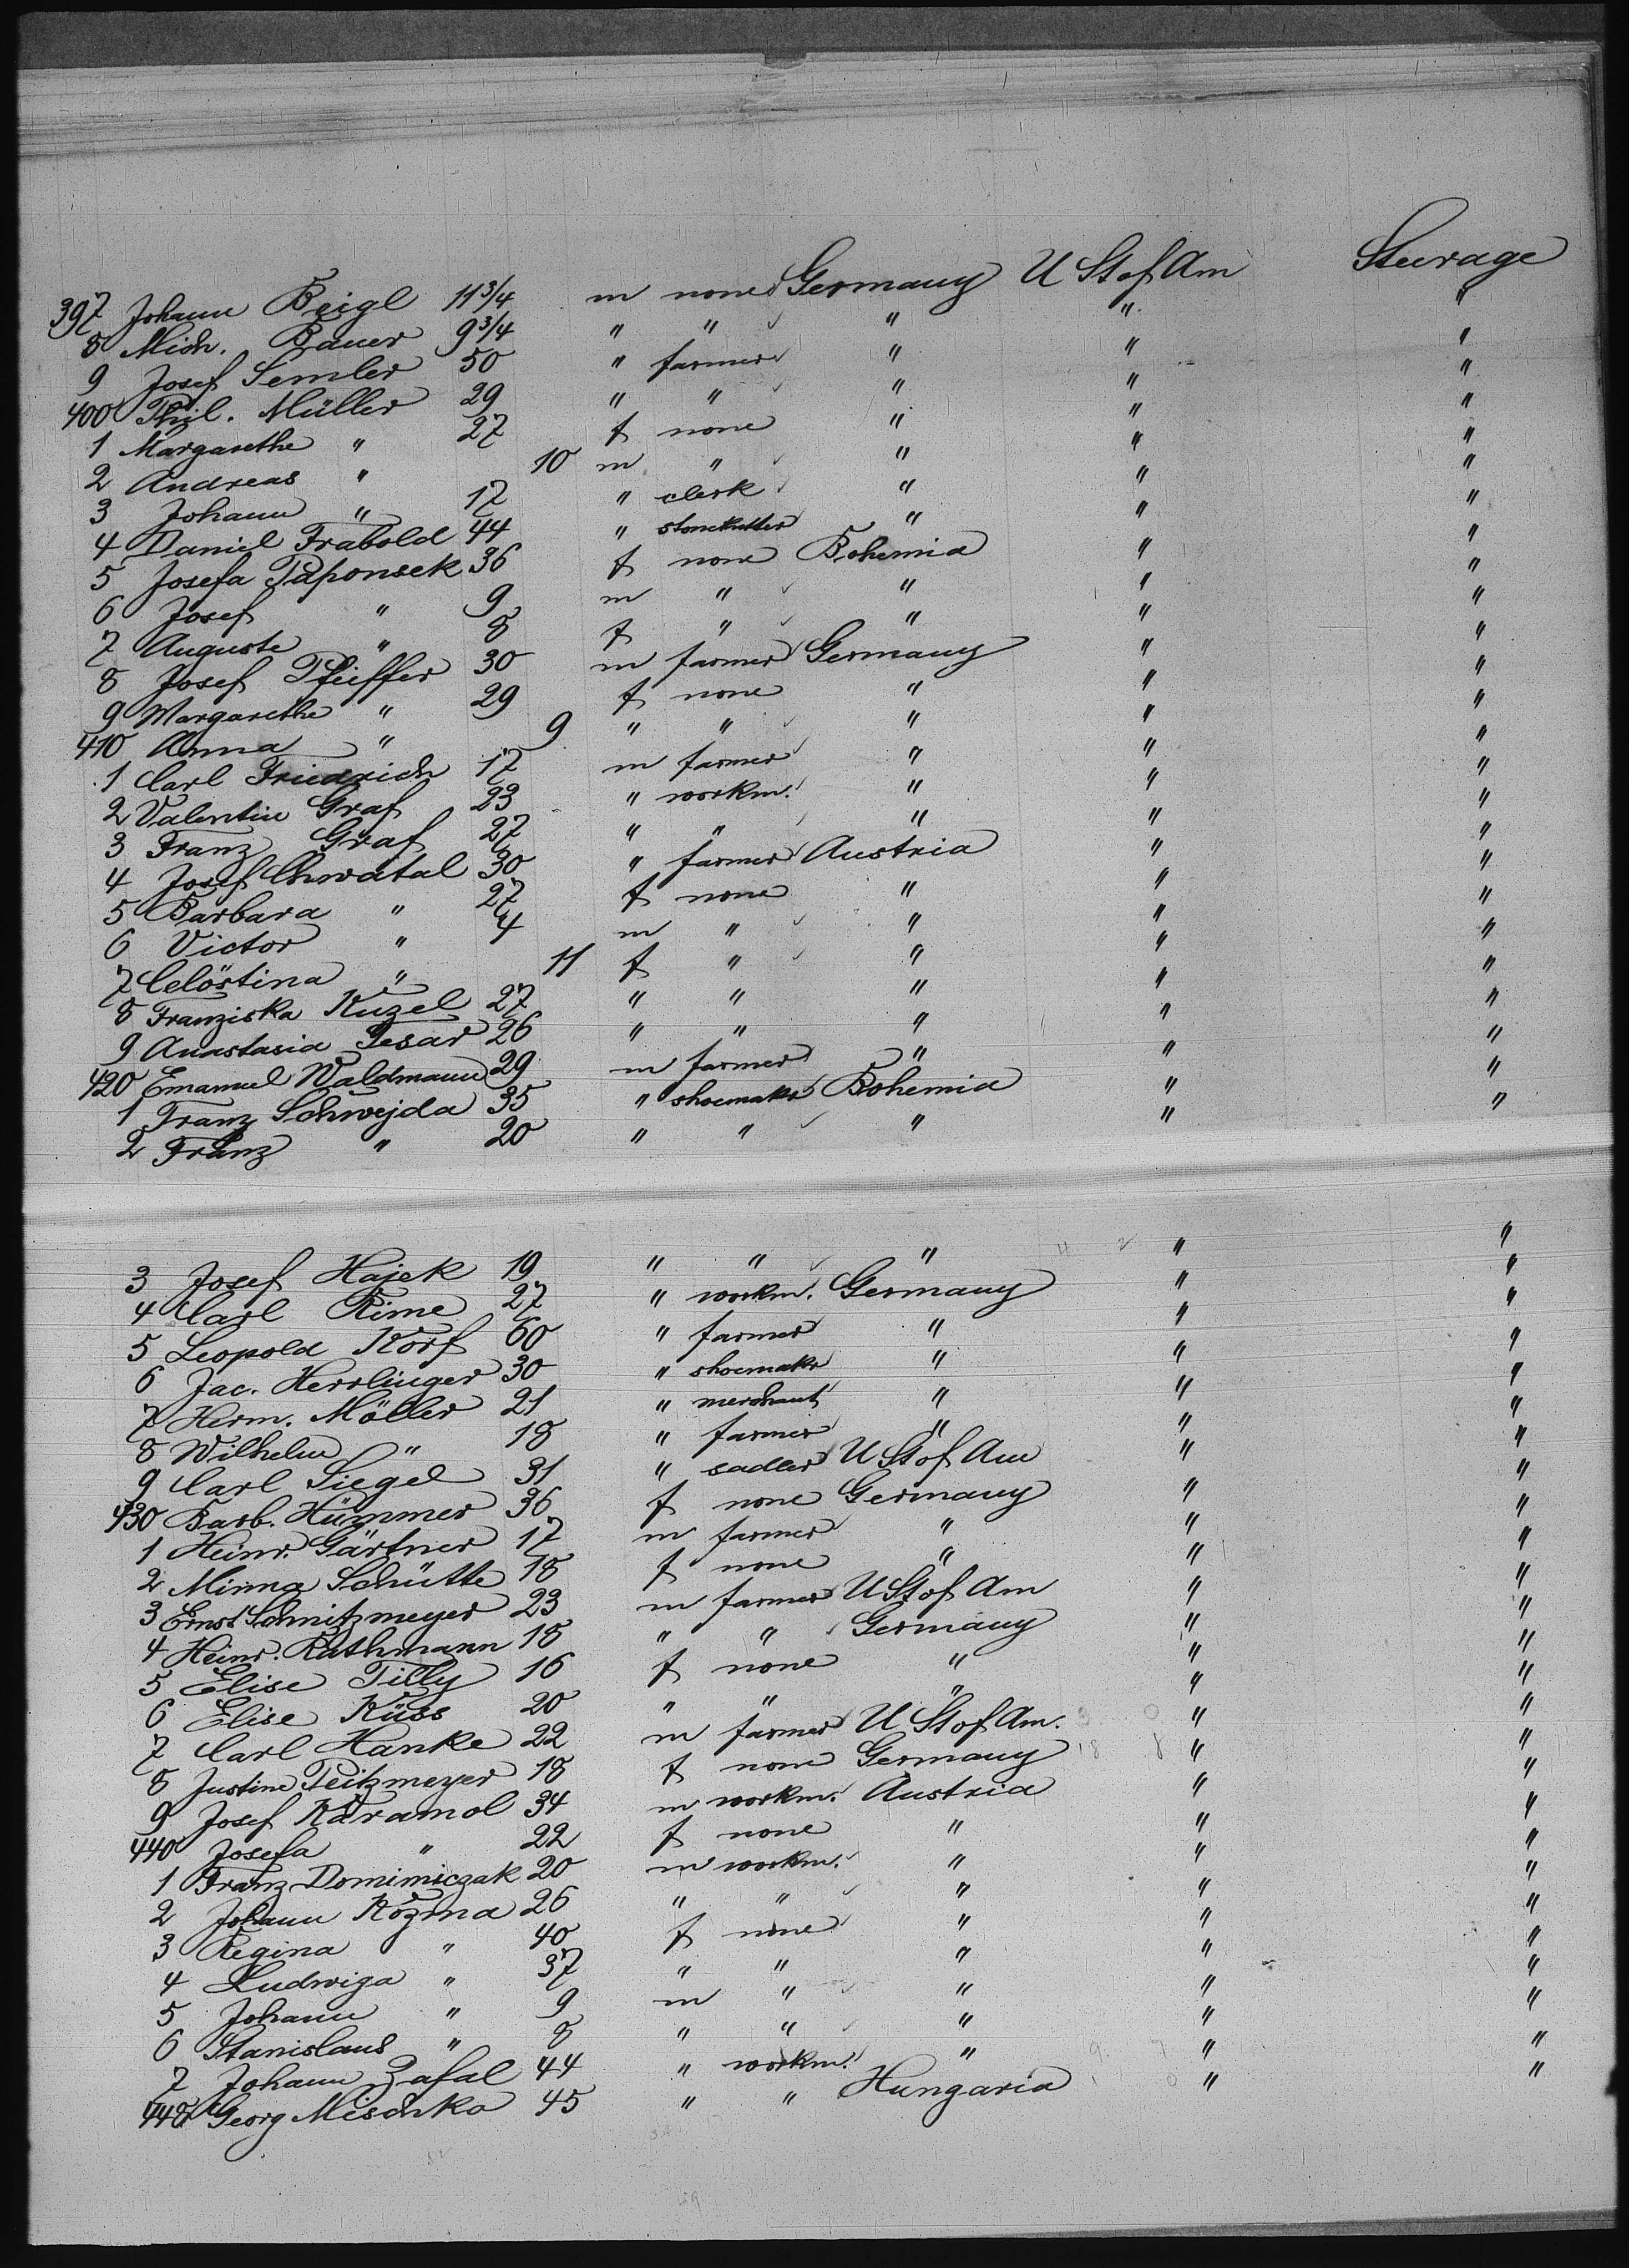 397 Johann Beigl 11 3/4 m none Germany U St of Am Steerage
8 Mich. Bauer 9 3/4 " " " " "
9 Josef Semler 50 " farmer " " "
400 Phil. Müller 29 " " " " "
1 Margarethe " 27 f none " " "
2 Andreas " 10 m " " " "
3 Johann " 17 " clerk " " "
4 Daniel Frabold 44 " stonekutter " " "
5 Josefa Taponsek 36 f none Bohemia " "
6 Josef " 9 m " " " "
7 Auguste " 8 f " " " "
8 Josef Pfeiffer 30 m farmer Germany " "
9 Margarethe " 29 f none " " "
410 Anna " 9 " " " " "
1 Carl Friedrich 17 m farmer " " "
2 Valentin Graf 23 " workm. " " "
3 Franz Graf 27 " " " " "
4 Josef Chwatal 30 " farmer Austria " "
5 Barbara " 27 f none " " "
6 Victor " 4 m " " " "
7 Celöstina " 11 f " " " "
8 Franziska Kuzel 27 " " " " "
9 Anastasia Pesar 26 " " " " "
420 Emanuel Waldmann 29 m farmer " " "
1 Franz Schwejda 35 " shoemakr Bohemia " "
2 Franz " 20 " " " " "
3 Josef Hajek 19 " " " " "
4 Carl Rime 27 " workm. Germany " "
5 Leopold Korf 60 " farmer " " "
6 Jac. Herrlinger 30 " shoemakr " " "
7 Herm. Möller 21 " merchant " " "
8 Wilhelm " 18 " farmer " " "
9 Carl Siegel 31 " sadler U St of Am " "
430 Barb. Hümmer 36 f none Germany " "
1 Heinr. Gärtner 17 m farmer " " "
2 Minna Schütte 18 f none " " "
3 Ernst Schnitzmeyer 23 m farmer U St of Am " "
4 Heinr. Rathmann 18 " " Germany " "
5 Elise Tilly 16 f none " " "
6 Elise Küss 20 " " " " "
7 Carl Hanke 22 m farmer U St of Am. " "
8 Justine Peitzmeyer 18 f none Germany " "
9 Josef Karamol 34 m workm. Austria " "
440 Josefa " 22 f none " " "
1 Franz Dominiczak 20 m workm. " " "
2 Johann Kozma 26 " " " " "
3 Regina " 40 f none " " "
4 Ludwiga " 37 " " " " "
5 Johann " 9 m " " " "
6 Stanislaus " 8 " " " " "
7 Johann Zafal 44 " workm. " " "
448 Georg Mischko 45 " " Hungaria " "